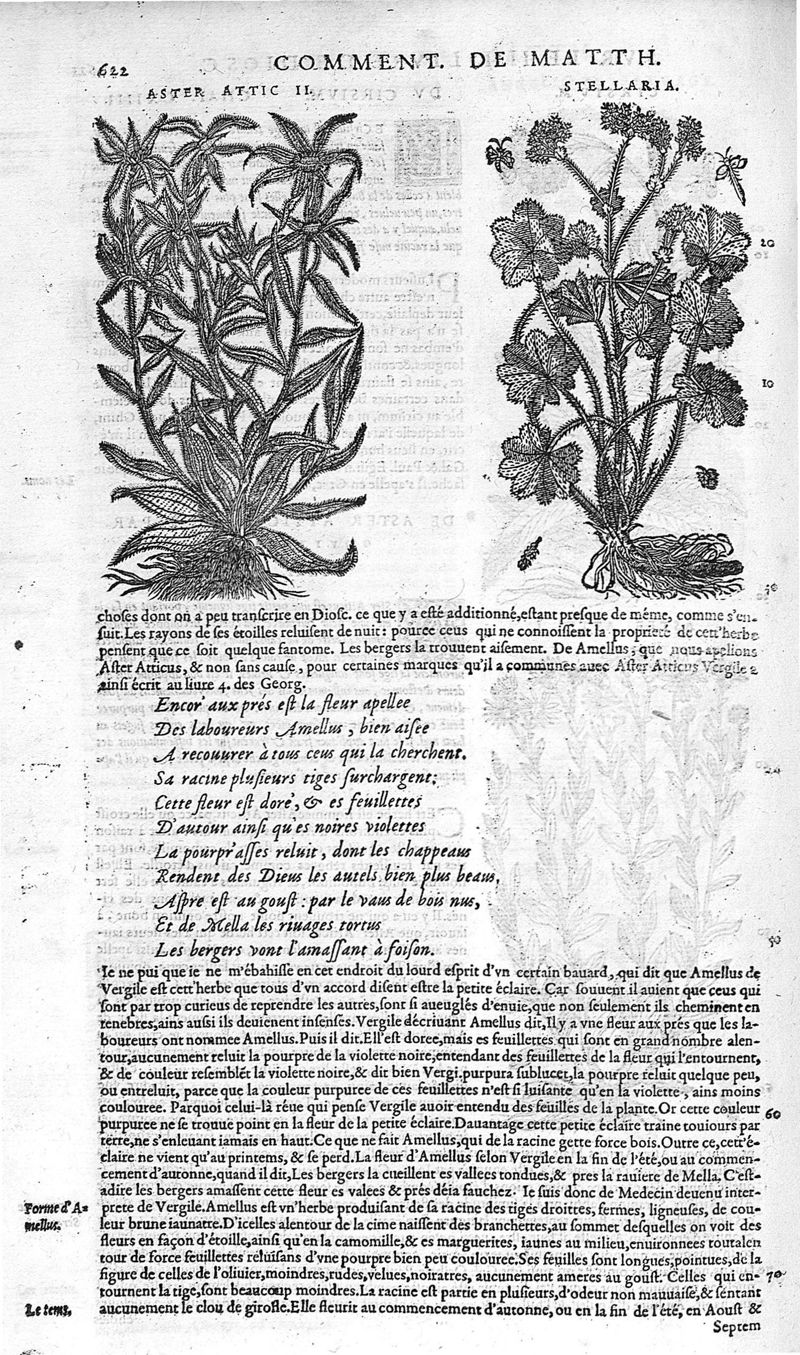 622
COMMENT. DE MATTH.
ASTER ATTIC II.
STELLARIA.
20
10
choses dont on a peu transcrire en Diosc. ce que y a esté additionné, estant presque de même, comme s'en-
suit. Les rayons de ses étoilles reluisent de nuit: pource ceus qui ne connoissent la proprieté de cett'herbe
pensent que ce soit quelque fantome. Les bergers la trouuent aisement. De Amellus, que nous apelions
Aster Atticus, & non sans cause, pour certaines marques qu'il a communes auec Aster Atticus Vergile a
ainsi écrit au liure 4. des Georg.
Encor' aux prés est la fleur apellee
Des laboureurs Amellus, bien aisee
A recouurer à tous ceus qui la cherchent.
Sa racine plusieurs tiges surchargent:
Cette fleur est doré', & es feuillettes
D'autour ainsi qu'es noires violettes
La pourpr'asses reluit, dont les chappeaus
Rendent des Dieus les autels bien plus beaus,
Aspre est au goust: par le vaus de bois nus,
Et de Mella les riuages tortus
Les bergers vont l'amassant à foison.
50
Ie ne pui que ie ne m'ébahisse en cet endroit du lourd esprit d'vn certain bauard, qui dit que Amellus de
Vergile est cett'herbe que tous d'vn accord disent estre la petite éclaire. Car souuent il auient que ceus qui
sont par trop curieus de reprendre les autres, sont si aueuglés d'enuie, que non seulement ils cheminent en
tenebres, ains aussi ils deuienent insensés. Vergile décriuant Amellus dit, Il y a vne fleur aux prés que les la-
boureurs ont nommee Amellus. Puis il dit. Ell'est doree, mais es feuillettes qui sont en grand nombre alen-
tour, aucunement reluit la pourpre de la violette noire, entendant des feuillettes de la fleur qui l'entournent,
& de couleur resemblét la violette noire, & dit bien Vergi. purpura sublucet, la pourpre reluit quelque peu,
ou entreluit, parce que la couleur purpuree de ces feuillettes n'est si luisante qu'en la violette, ains moins
coulouree. Parquoi celui-là réue qui pense Vergile auoir entendu des feuilles de la plante. Or cette couleur
60
purpuree ne se trouue point en la fleur de la petite éclaire. Dauantage cette petite éclaire traine tousiours par
terre, ne s'enleuant iamais en haut. Ce que ne fait Amellus, qui de la racine gette force bois. Outre ce, cett'é-
claire ne vient qu'au printems, & se perd. La fleur d'Amellus selon Vergile en la fin de l'été, ou au commen-
cement d'autonne, quand il dit, Les bergers la cueillent es vallees tondues, & pres la rauiere de Mella. C'est-
adire les bergers amassent cette fleur es valees & prés déia fauchez. Ie suis donc de Medecin deuenu inter-
Forme d'A-
mellus.
prete de Vergile. Amellus est vn'herbe produisant de sa racine des tiges droittes, fermes, ligneuses, de cou-
leur brune iaunatre. D'icelles alentour de la cime naissent des branchettes, au sommet desquelles on voit des
fleurs en façon d'étoille, ainsi qu'en la camomille, & es marguerites, iaunes au milieu, enuironnees toutalen
tour de force feuillettes reluisans d'vne pourpre bien peu coulouree. Ses feuilles sont longues, pointues, de la
figure de celles de l'oliuier, moindres, rudes, velues, noiratres, aucunement ameres au goust. Celles qui en-
70
tournent la tige, sont beaucoup moindres. La racine est partie en plusieurs, d'odeur non mauuaise, & sentant
Le tems.
aucunement le clou de girofle. Elle fleurit au commencement d'autonne, ou en la fin de l'été, en Aoust &
Septem